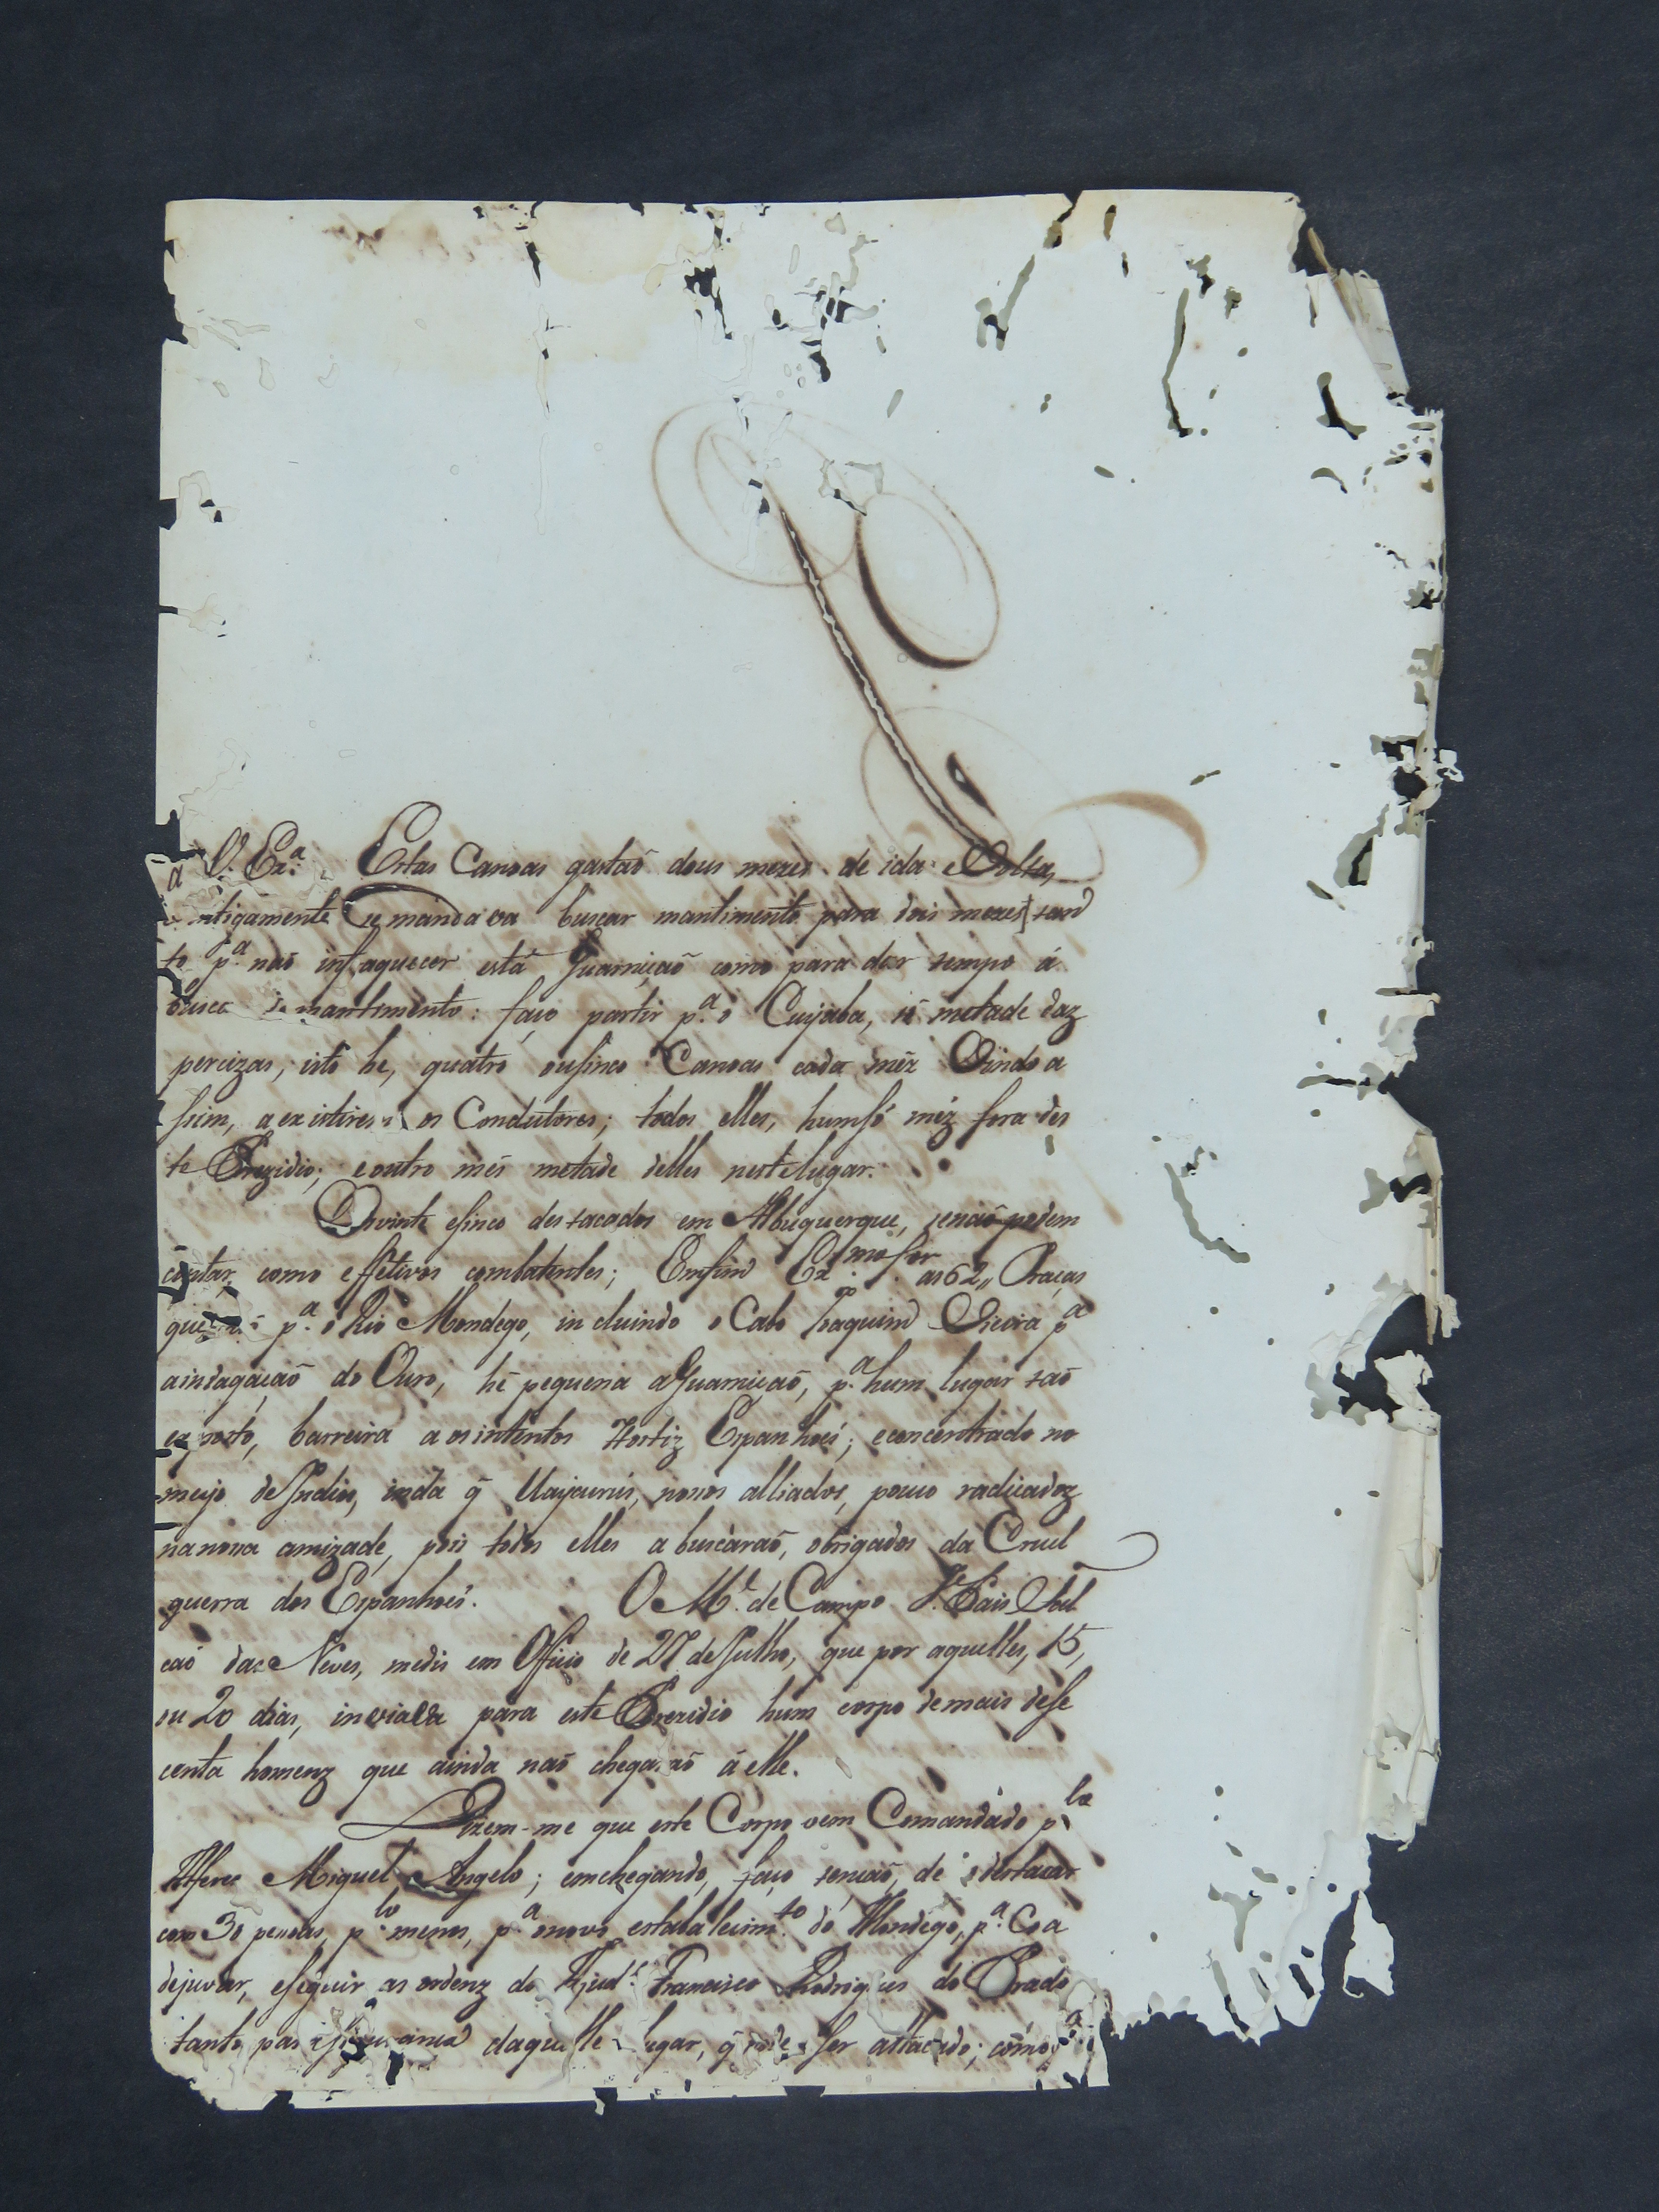 a V. Exª. Estas Canoas gastaõ dous mezes de ida e Volta,
antigamente Se mandava buscar mantimento para dois mezes, tan
to pª. naõ infraquecer está Guarniçaõ como para dar tempo á
busca de mantimento: faço partir pª. o Cuyaba, só metade daz
percizas, isto he, quatro ousinco Canoas cada mêz Vindo a
ssim, a existirem os Condutores; todos elles, humsó mêz fora des
te Prezidio; e outro mês metade delles neste lugar.
Os vinte esinco destacados em Albuquerque, senaõ podem
contar como effetivos combatentes; Emfim Exmo. Snr as 62,, Praças
que pª. o Rio Mondego, incluindo o Cabo Joaquim Vieira pª
aindagaçaõ do Ouro, hé pequena aGuarniçaõ, pª. hum lugar taõ
exposto, barreira aosintentos Hostiz Espanhoes; econcentrado no
meyo deIndios, inda q̃ Uaycurús, nosos alliados, pouco radicadoz
nanova amizade, pois todos elles abuscàraõ, obrigados da Cruel
guerra dos Espanhoes. O Me. de Campo Je. Pais Fal
caõ das Neves, medis em Officio de 27 deJulho, que por aquelles, 15,
ou 20 dias, inviava para este Prezidio hum corpo demais dese
centa homenz que ainda naõ chegaraõ á elle.
Dizem-me que este Corpo vem Comandàdo plo
Alferes Miguel Angelo; emchegando, faço tençaõ, de o destacar
com 30 pessoas, plo menos, pª onovo estabalecimto. do Mondego, pª. Coa
dejuvar, eseguir as ordenz do Ajude. Francisco Rodrigues do Prado
tanto para seguransa daquelle lugar, q̃ pode ser attacado; como pª